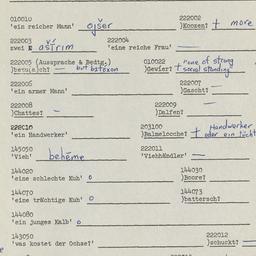 010010 222002
'ein reicher Mann' ojšer )Kootzen? † more
222003 222004
zwei E ašīrim 'eine reiche Frau' —
222005 (Aussprache & Bedtg.) 010022 none of strong
)betu(e)cht — but bətoxən )Gewier? † social standing
222006 222007
'ein armer Mann' )Gascht? —
222008 222009
)Chattes? — )Dalfen? —
222010 203100 Handwerker
'ein Handwerker' )Balmeloche? † oder ein tücht
145050 222011
'Vieh' behēme 'Viehhändler' —
144020 144030
'eine schlechte Kuh' o )Boore?
144070 144073
'eine trächtige Kuh' o )battersch?
144080
'ein junges Kalb' o
143050 222012
'was kostet der Ochse?' )schuckt? —